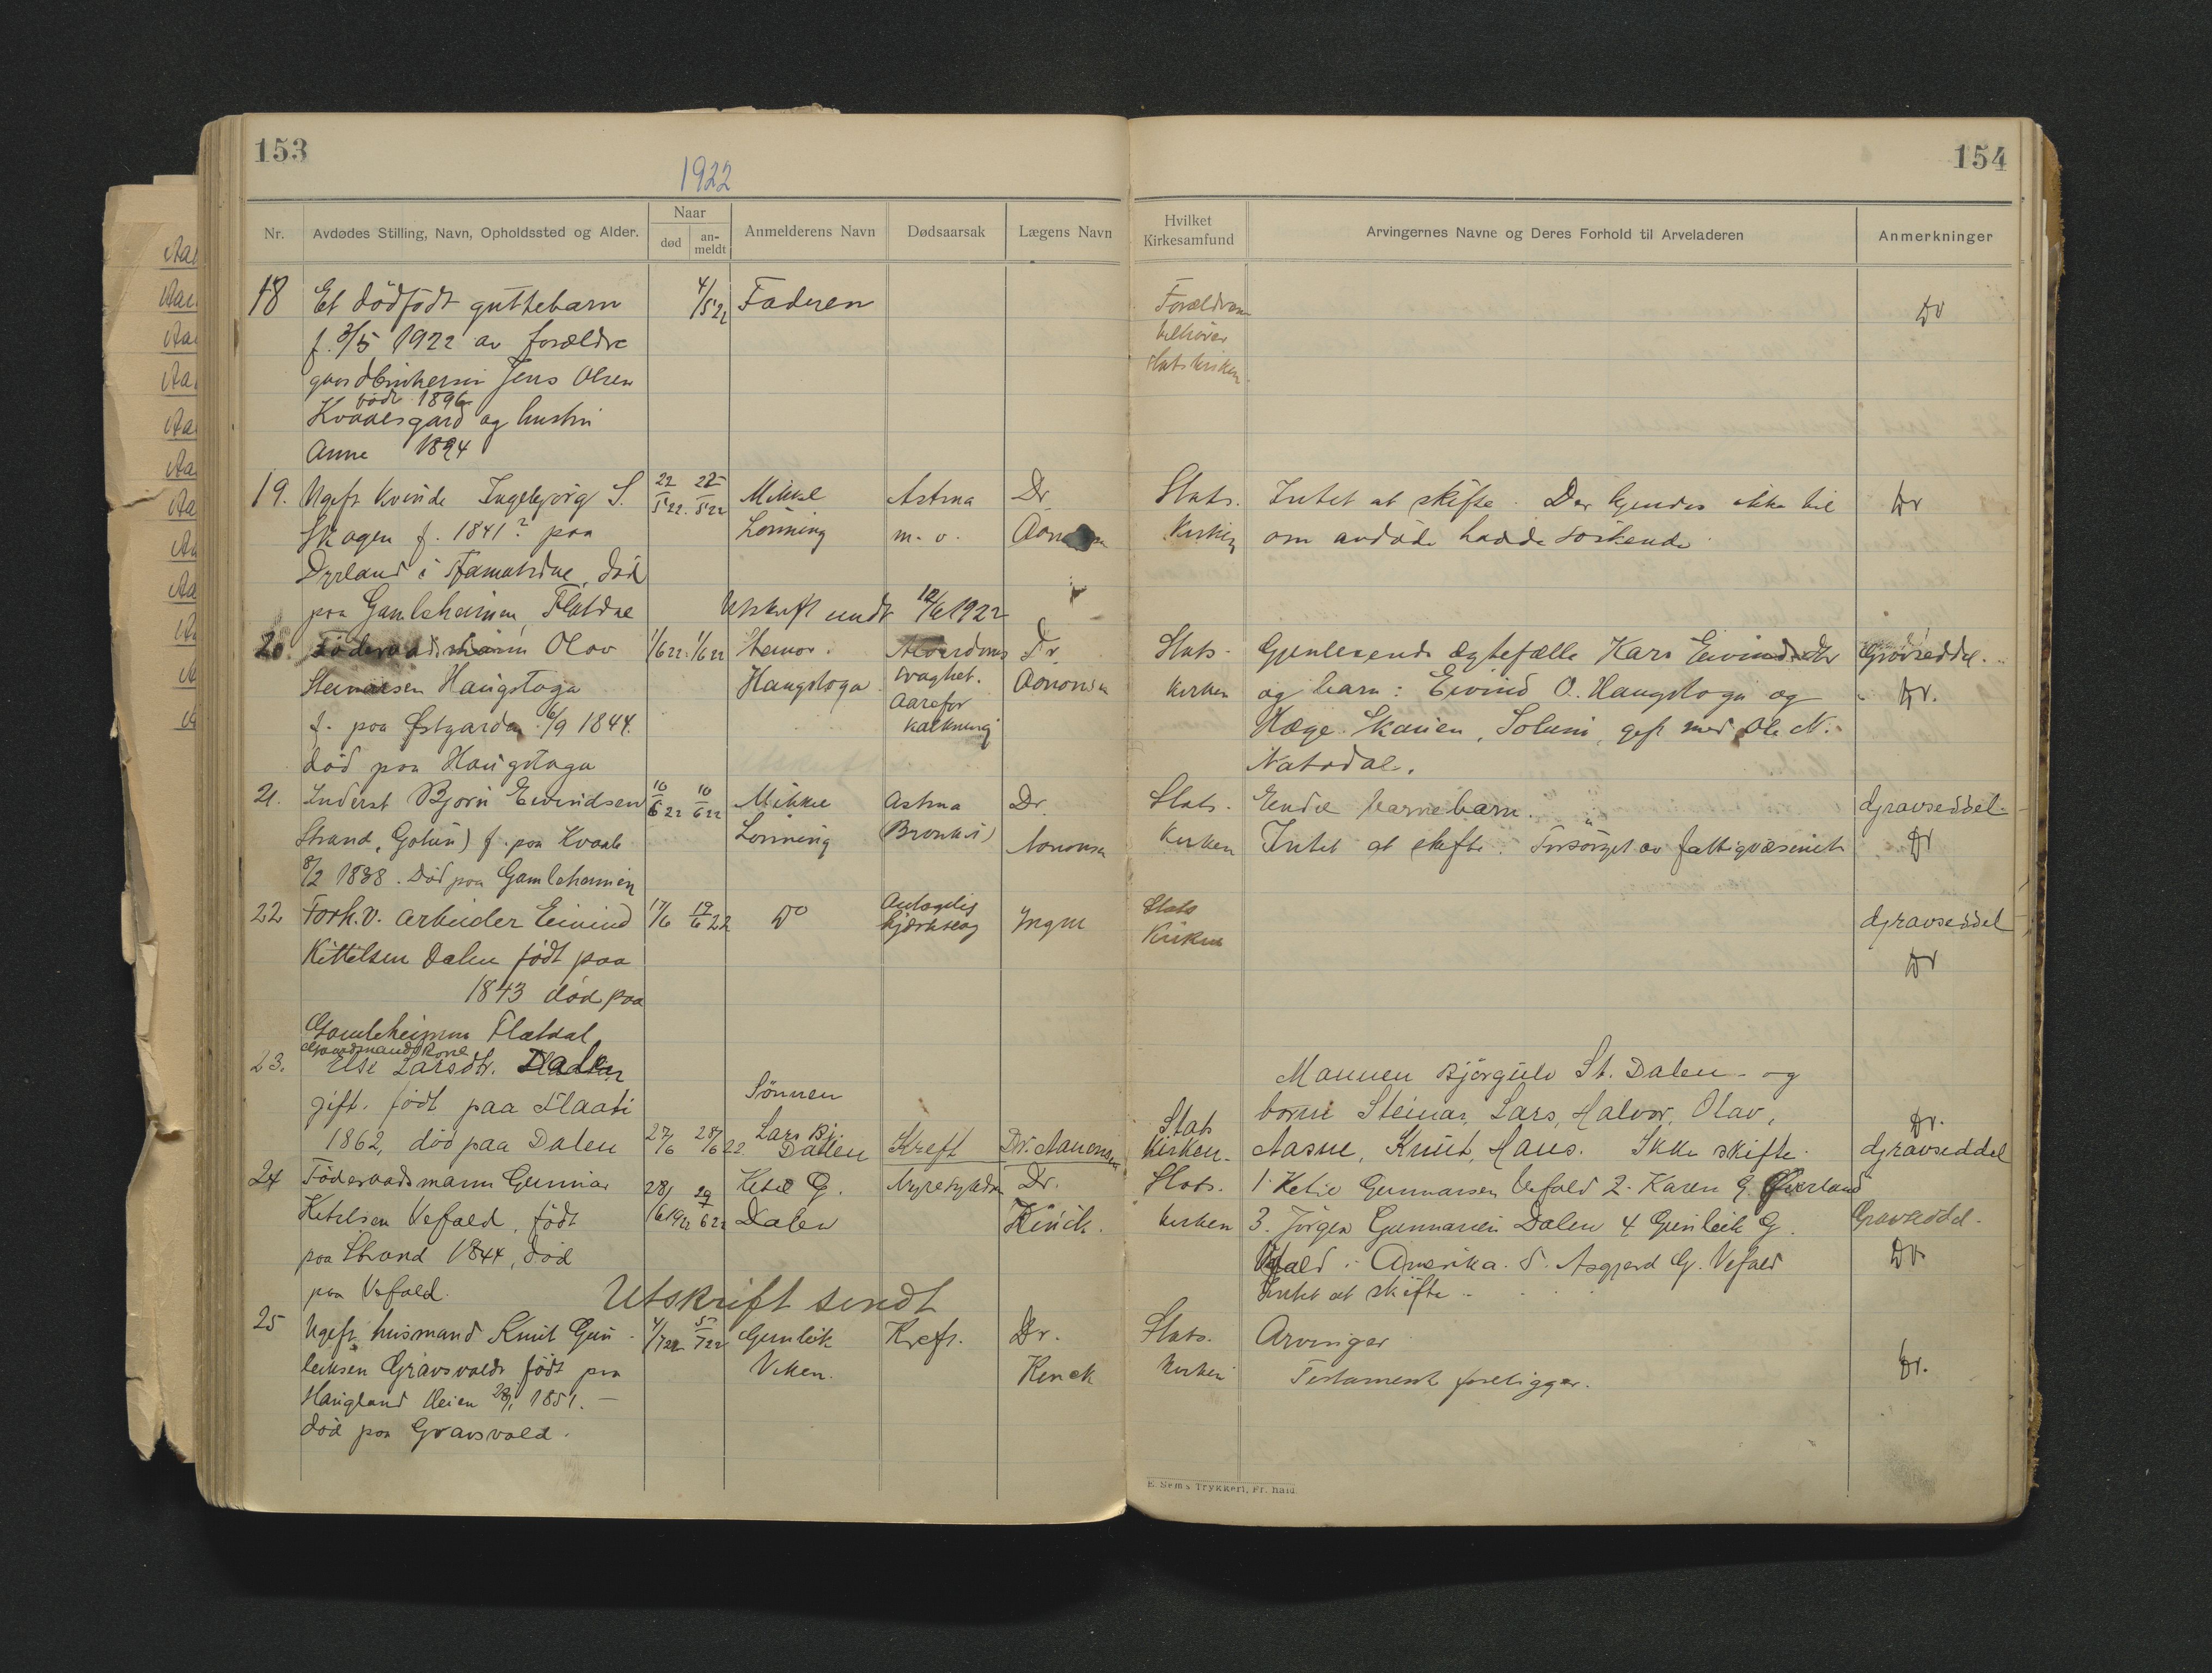 153
1922
154
Nr. Avdødes Stilling, Navn, Opholdssted og Alder. Naar død an-meldt Anmelderens Navn Dødsaarsak Lægens Navn Hvilket Kirkesamfund Arvingernes Navne og Deres Forhold til Arveladeren Anmerkninger
18 Et dödfödt guttebarn 4/5 22 Faderen
f. 3/5 1922 av forældre
Jens Olsen
född 1896
Kvaalesgard og hustru
Anne 1894
19. Ugift kvinde Ingebjörg S. 22/5 22. 22/5 22 Mikkel Astma Dr
Skogen f. 1841? paa Lonning m. v.
Dyrland i död
paa Gamleheimen, Flatdal Utskrift sendt 12/6 1922
20 Föderaadsmann Olav 1/6 22. 1/6 22 Steinar Alderdoms Dr.
Steinarsen Haugstoga Haugstoga svaghet. Aanonsen
f. paa Østgarden 6/9 1844. Aarefor
kalkning
död paa Haugstoga
21. Inderst Bjørn Eivindsen 10/6 22 10/6 22 Mikkel Astma Dr.
Strand, f. paa Kvaale Lonning (Bronkit) Aanonsen
8/2 1838. Död paa Gamleheimen
22 Forh.v. arbeider Eivind 17/6 19/6 22 Do Antagelig Ingen
Kittelsen Dalen födt paa hjerteslag
1843 död paa
Gamleheimen Flatdal
Gaardmandskone
23. Else Larsdtr. Dalen
gift. födt paa Flaati Sönnen
1862, död paa Dalen 27/6 28/6 22 Lars Bj. Dalen Kreft Dr. Aanonsen
24 Föderaadsmann Gunnar 28/6 1922 29/6 22 Ketil G. Nyresykdom Dr.
Ketilsen Vefald, födt Dalen Kinck.
paa Strand 1844, död
paa Vefald.
Utskrift sendt
25 Ugift husmand Knut Gun- 4/7 22 5/7 22 Gunleik Kreft. Dr.
leiksen Gravsvold födt paa Viken. Kinck
Haugland Heien 28/1 1851. —
död paa Gravsvold.
Forældrene Dr
tilhörer
statskirken
Stats- Intet at skifte. Der kjendes ikke til Dr
kirken om avdöde hadde söskende.
Stats- Gjenlevende ægtefælle Kari Eivindsdtr Gravseddel.
kirken og barn: Eivind O. Haugstoga og Dr.
Hæge Skauen, Solum, gift med Ole N.
Natadal.
Stats- Endel barnebarn. Gravseddel
kirken Intet at skifte. Forsörget av fattigvæsenet Dr
Stats Gravseddel
Kirken Dr
Mannen Björgulv St. Dalen og
Stat born Steinar, Lars, Halvor, Olav, Dr.
Kirken. Aasne, Knut, Hans. Ikke skifte. Gravseddel
Stats- 1. Ketil Gunnarsen Vefald 2. Karen G. Överland
kirken 3. Jörgen Gunnarsen Dalen 4 Gunleik G. Gravseddel.
Vefald i Amerika. 5. Asgjerd G. Vefald Dr.
Intet at skifte.
Stats- Arvinger
kirken Testament foreligger. Dr.
E. Sem's Trykkeri, Fr. hald.